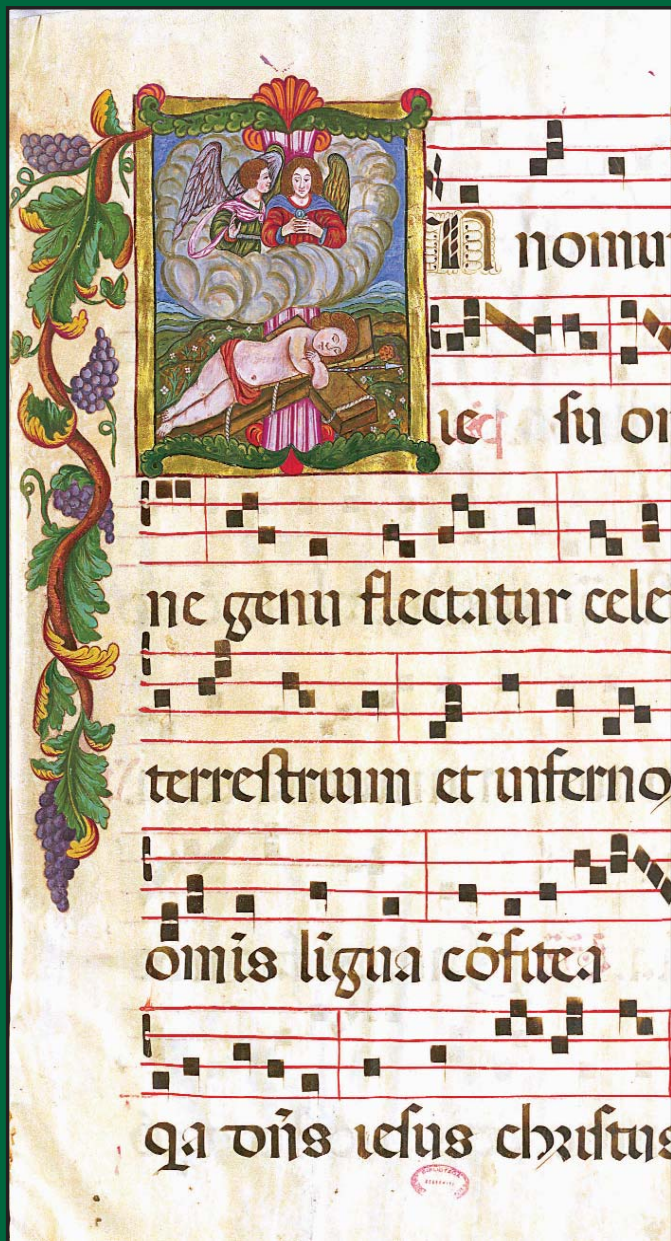 IN nomin
ie su on
ne genu flectatur cele
terrestrium et inferno
omis ligua cōfitea
qa dn̄s iesus christus
BIBLIOTECA